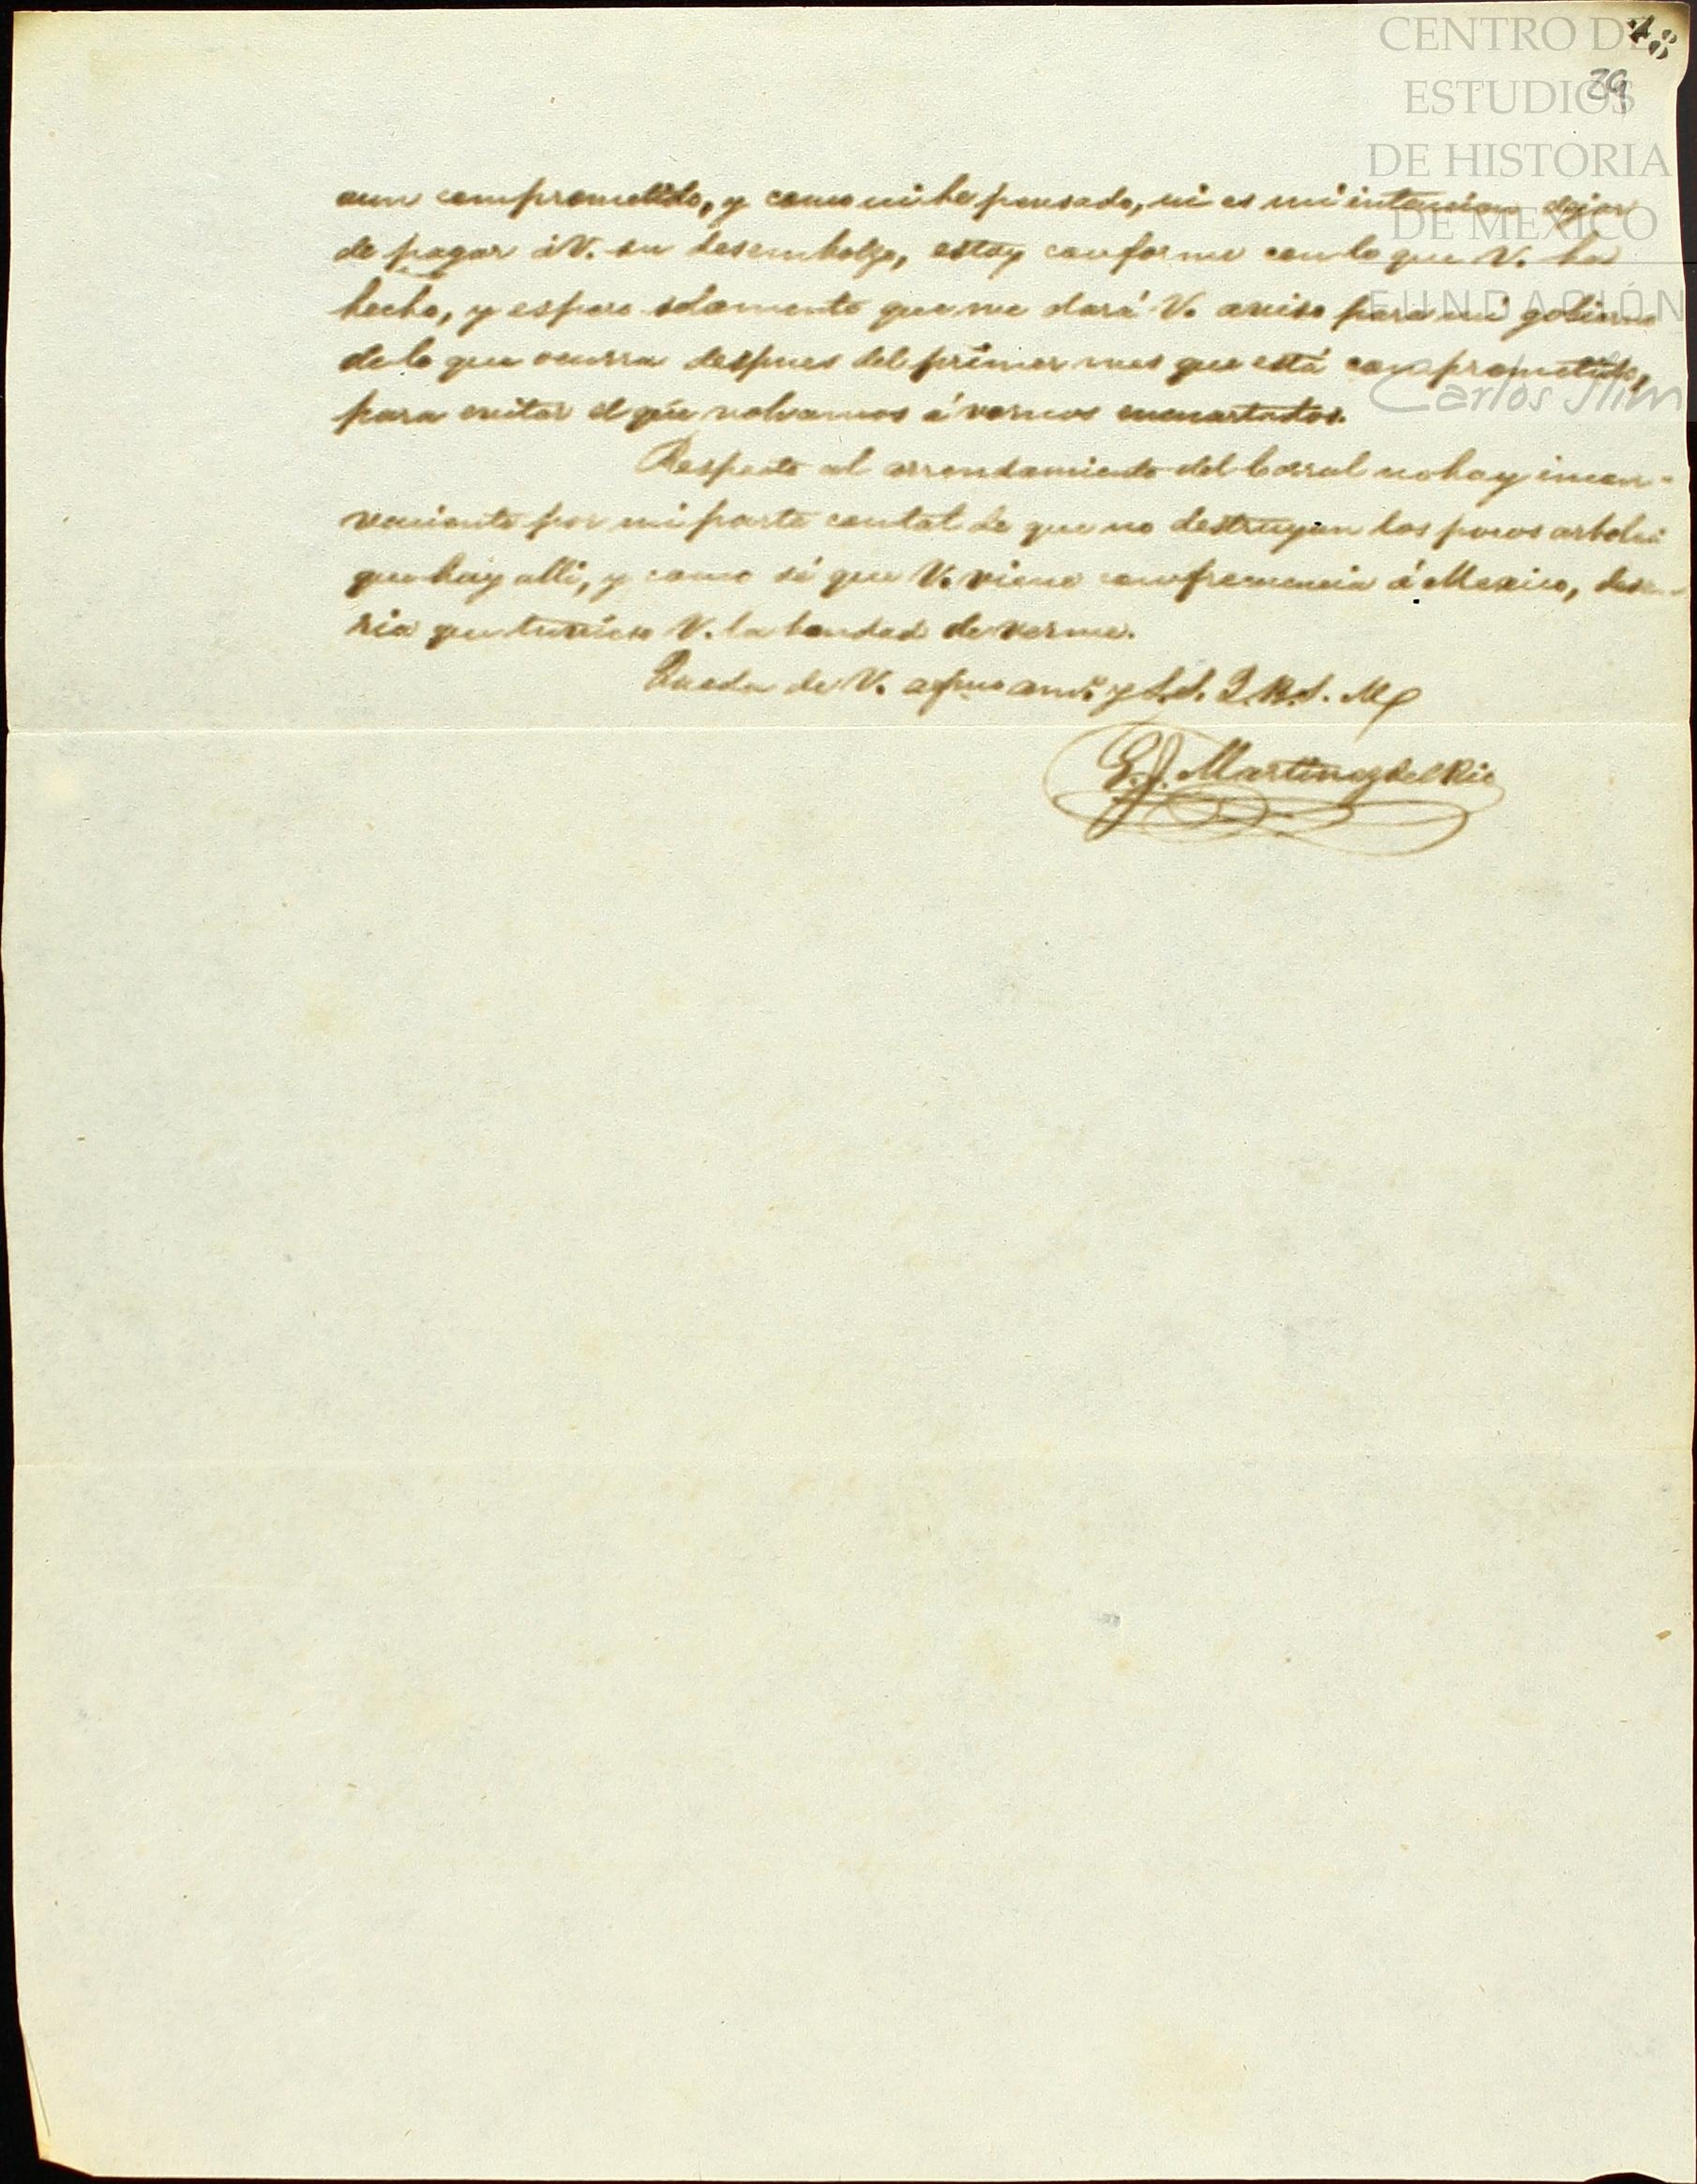 CENTRO DE
ESTUDIOS
DE HISTORIA
DE MÉXICO
FUNDACIÓN
Carlos Slim
39
aun comprometido, y como ni he pensado, ni es mi intencion dejar
de pagar á V. su desembolzo, estoy conforme con lo que V. ha
hecho, y espero solamente que me dará V. aviso para mi gobierno
de lo que ocurra despues del primer mes que está comprometido,
para evitar el que volvamos á vernos encuartados.
Respecto al arrendamiento del Corral no hay incon-
veniente por mi parte con tal de que no destruyan los pocos arboles
que hay alli, y como sé que V. viene con frecuencia á Mexico, dese-
ria que tuviese V. la bondad de verme.
Queda de V. afmo amo. y S.S. Q.B.S.M.
G.J. Martinez del Rio